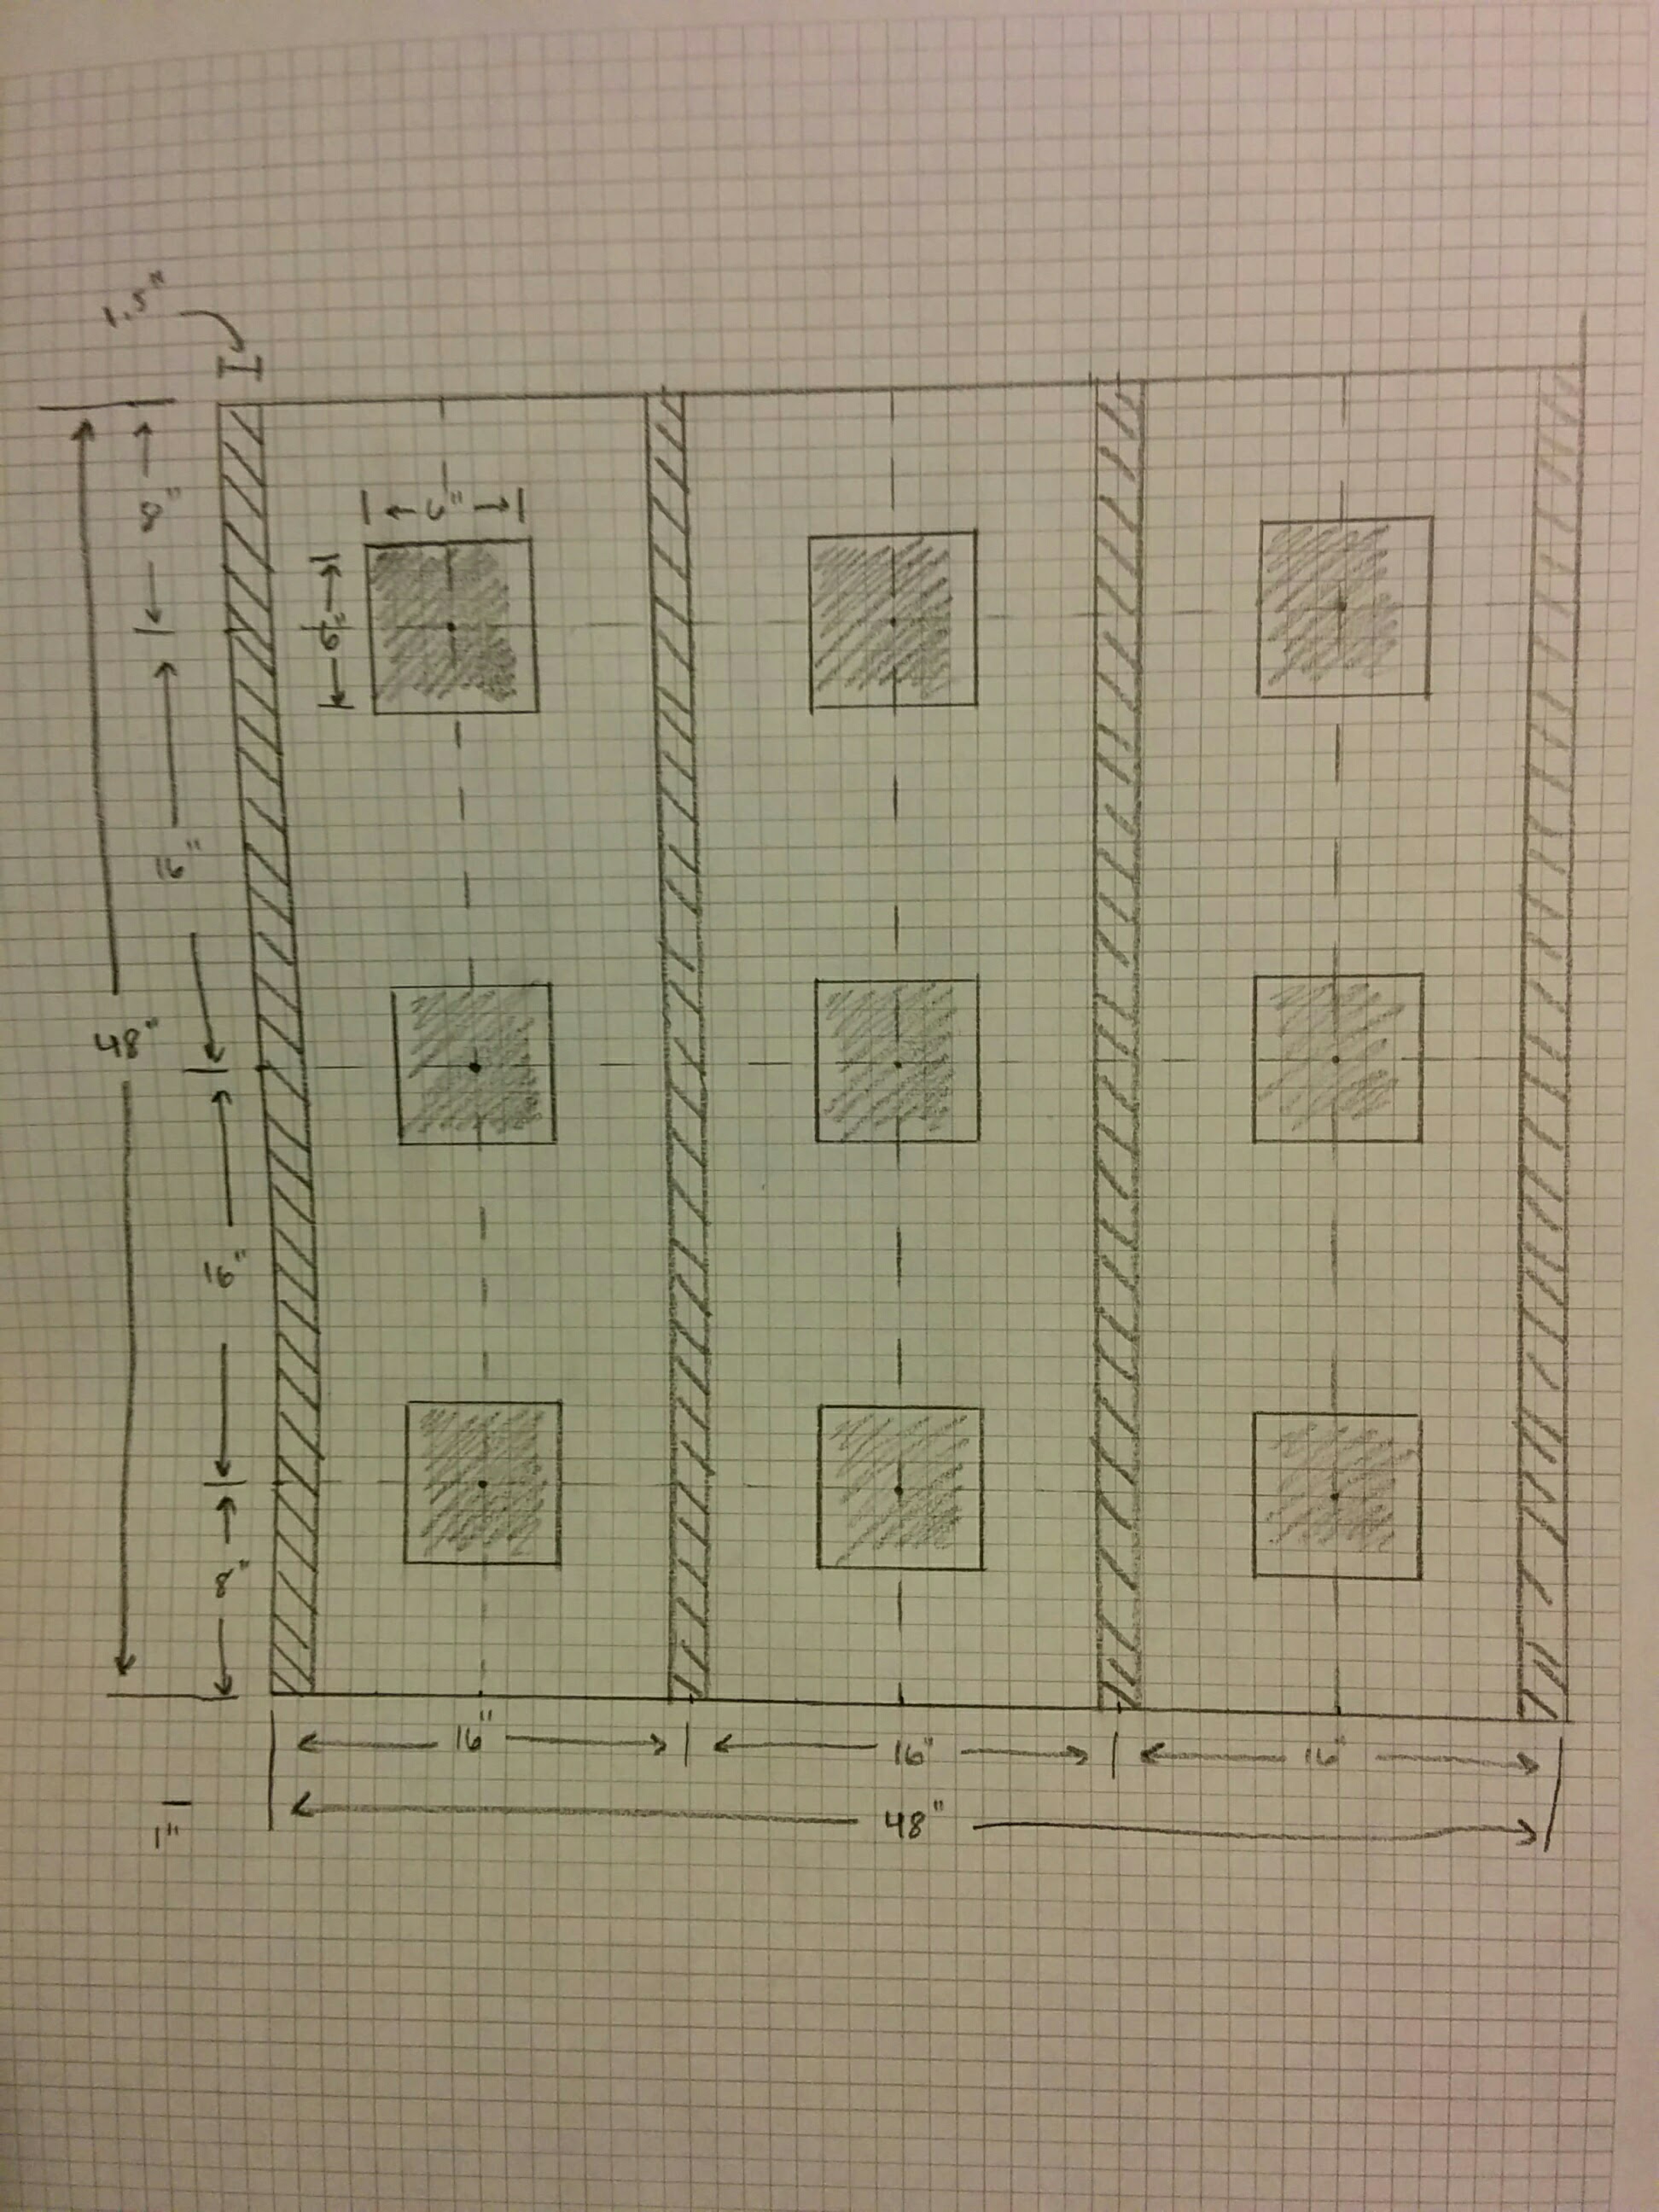 1.5"
8"
6"
6"
16"
48"
16"
8"
16" 16" 16"
48"
1"